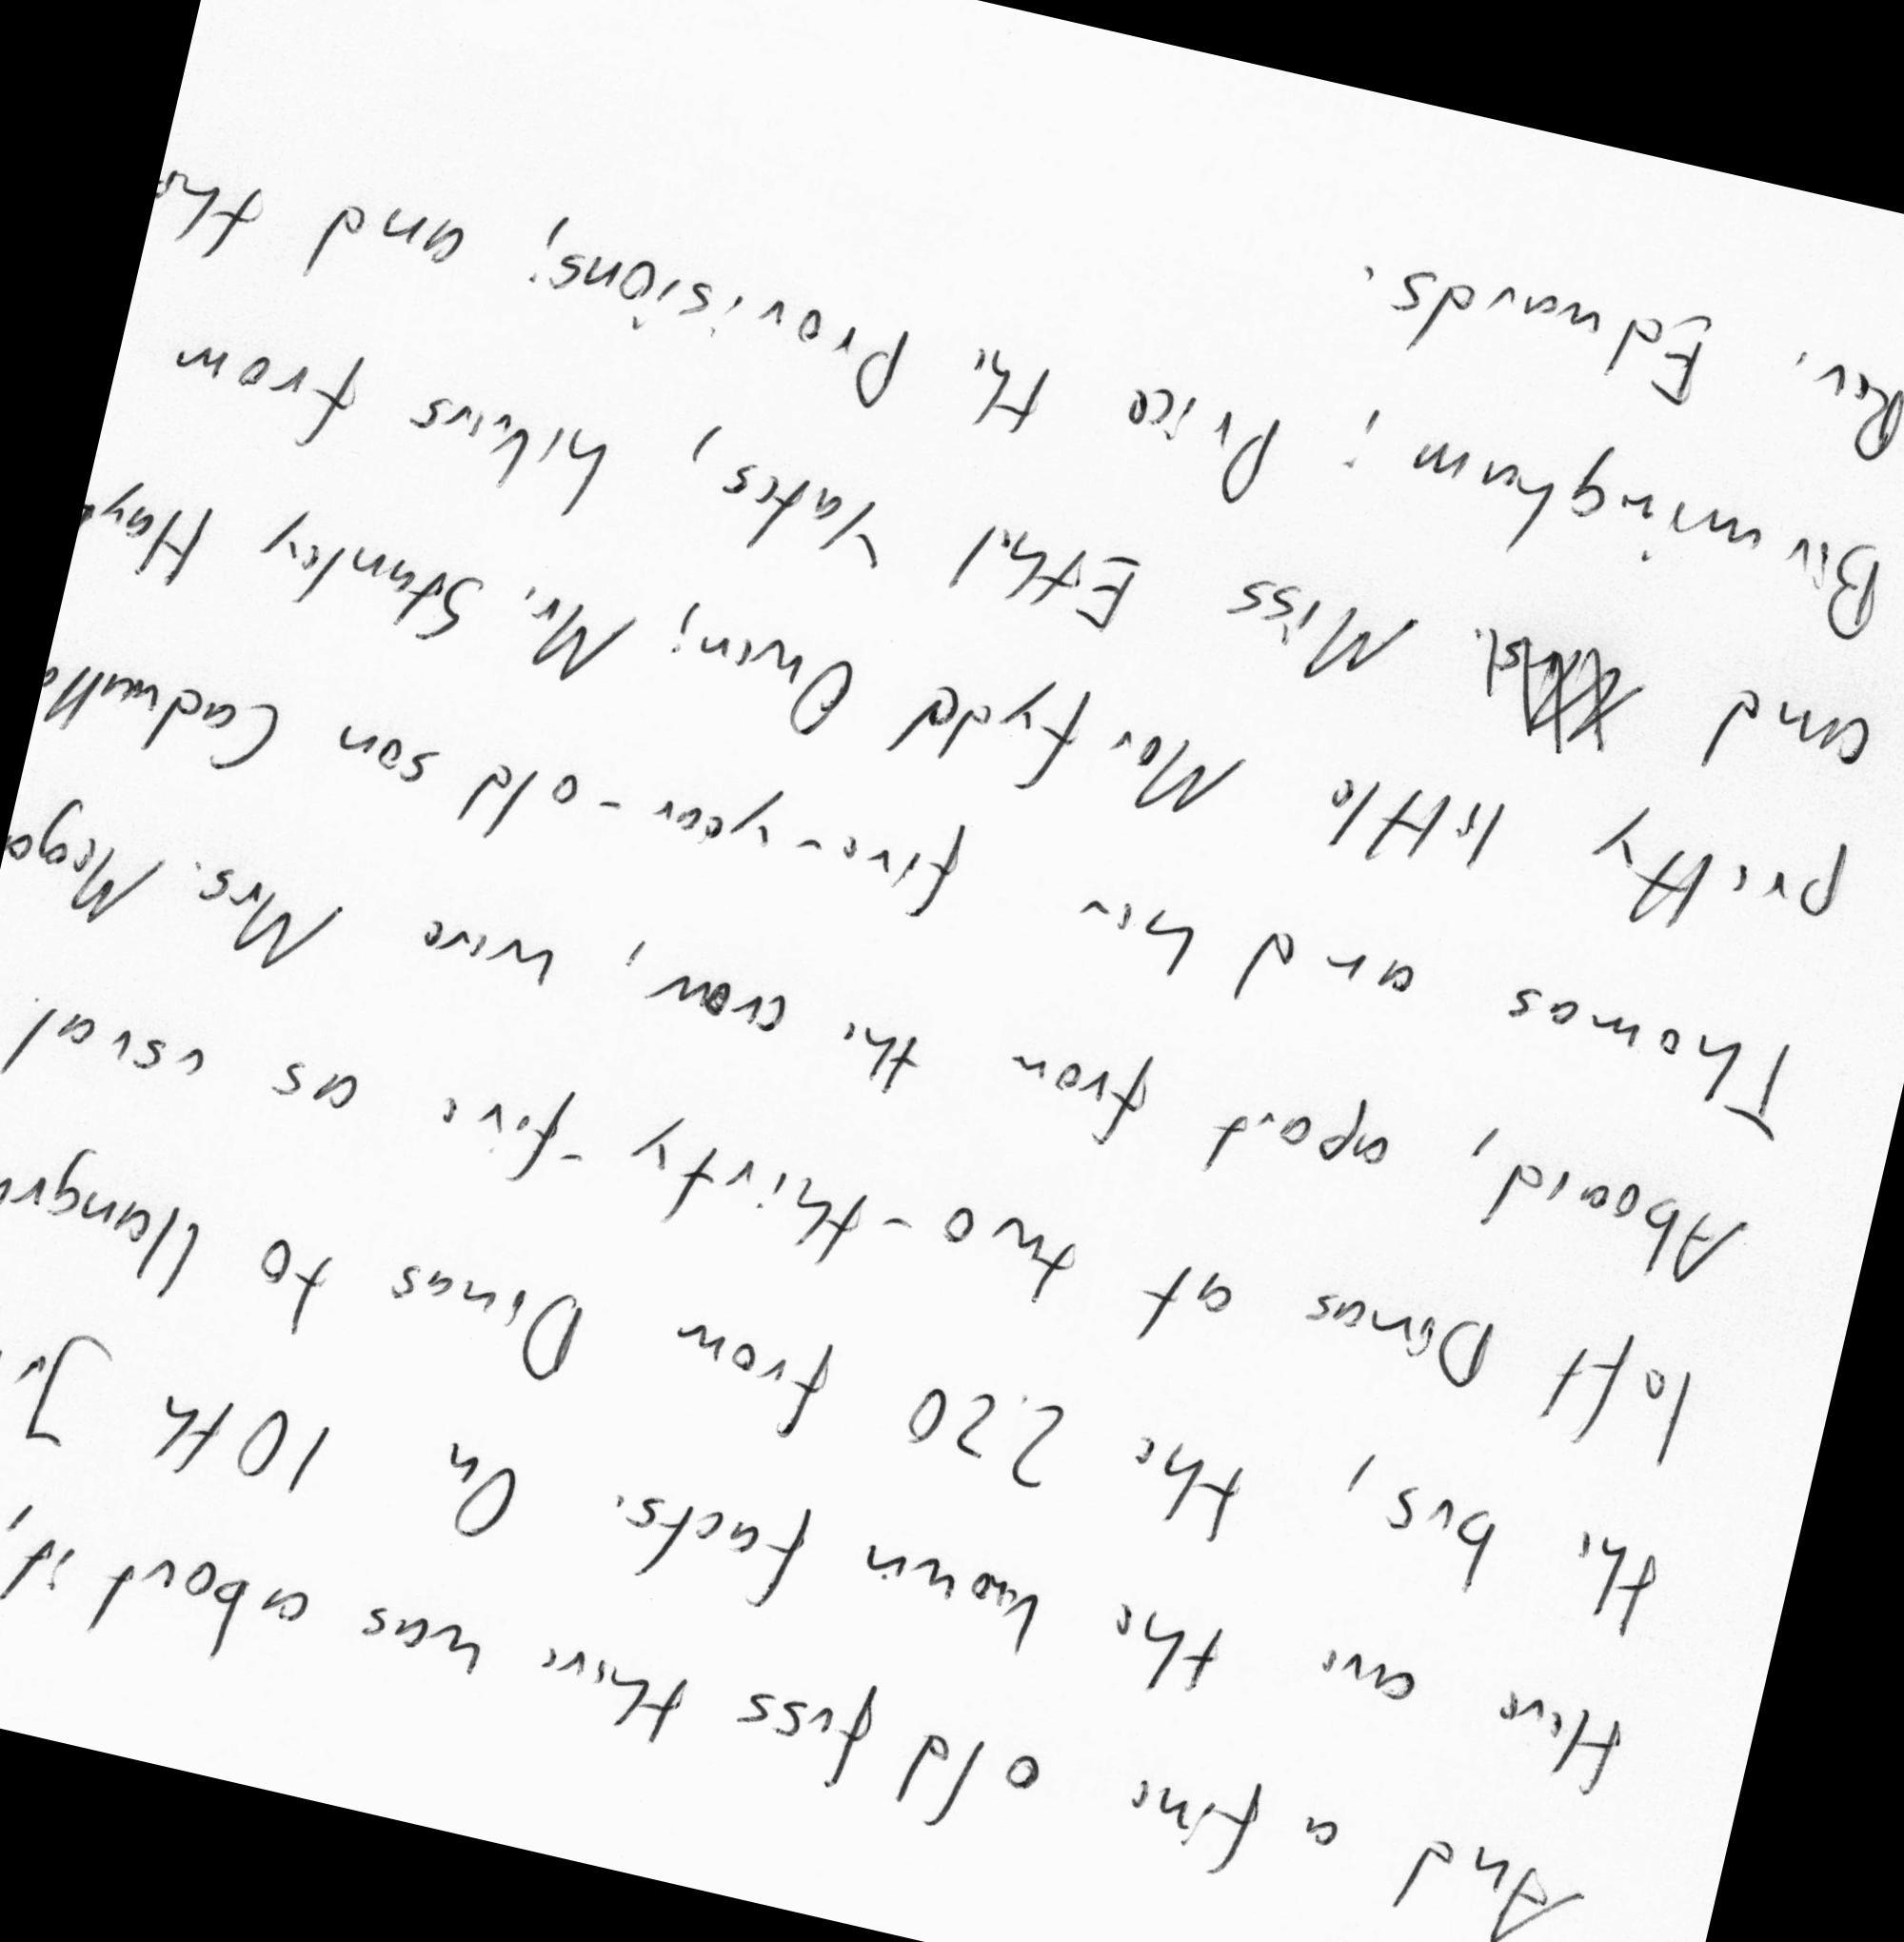 And a fine old fuss there was about it,
Here are the known facts. On 10th
the bus, the 2.20 from Dinas to
left Dinas at two-thirty-five as usual
Aboard, apart from the crew, were Mrs.
Thomas and her five-year-old son
pretty little Morfydd Owen; Mr. Stanley
and Miss Ethel Yates, hikers from
Birmingham; Price the Provisions; and the
Rev. Edwards.